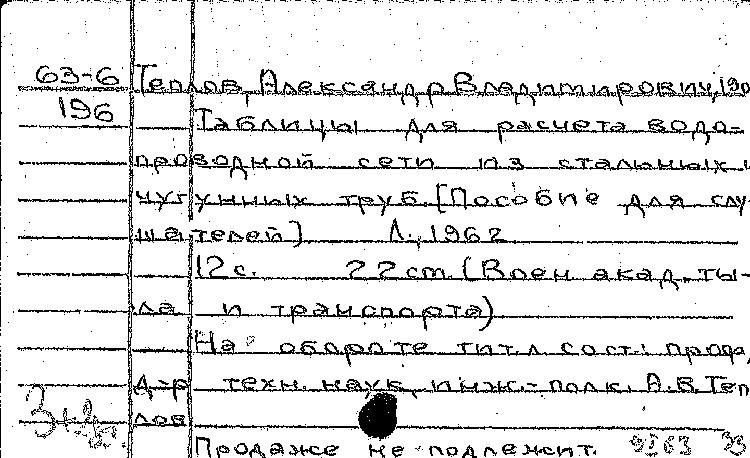 63-6 Теплов, Александр Владимирович, 190
196
Таблицы для расчета водо-
проводной сети из стальных и
чугунных труб. [Пособие для слу-
шателей] Л., 1962
12 с. 22 см. (Воен. акад. ты-
ла и транспорта)
На обороте тит. л. сост.: проф.,
д-р техн. наук, инж.-полк. А.В. Теп
лов
Продаже не подлежит.